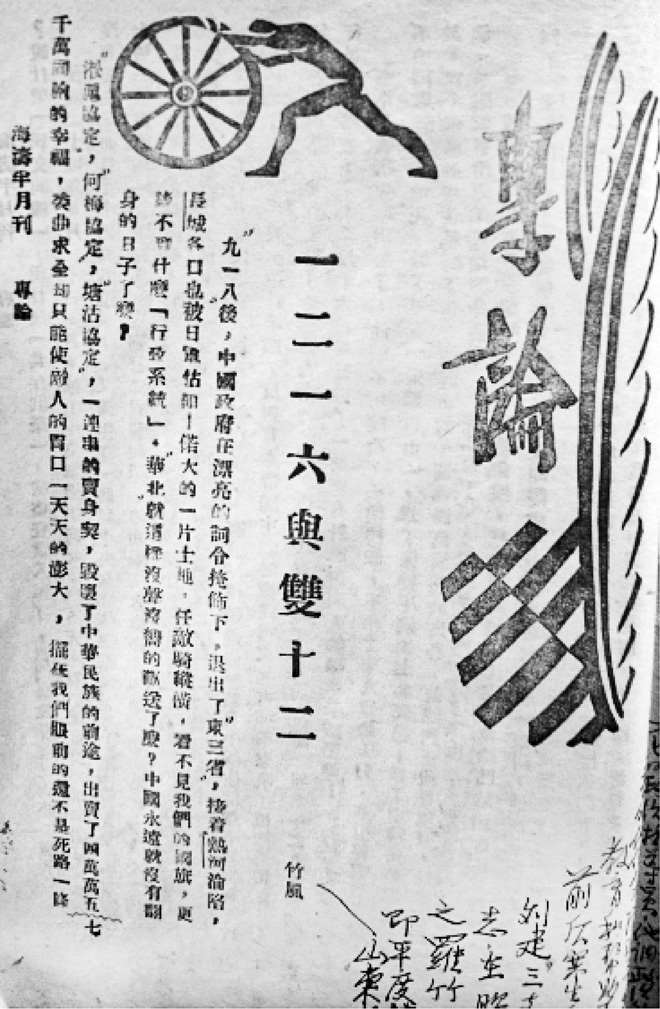 專論
一二一六與雙十二
竹風
九一八後，中國政府在漂亮的詞令掩飾下，退出了東三省，接着熱河淪陷，
長城各口也被日軍佔領！偌大的一片土地，任敵騎縱橫，看不見我們的國旗，更
不 什麼「行政系統」。華北就這樣沒聲沒響的斷送了麼？中國永遠就沒有翻
身的日子了麼？
淞滬協定，何梅協定，塘沽協定，一連串的賣身契，毀壞了中華民族的前途，出賣了四萬萬五七
千萬同胞的幸福，委曲求全却只能使敵人的胃口一天天的澎大，擺在我們眼前的還不是死路一條
海濤半月刊 專論
教育
前
列建三
志
之羅竹
即平度
山東